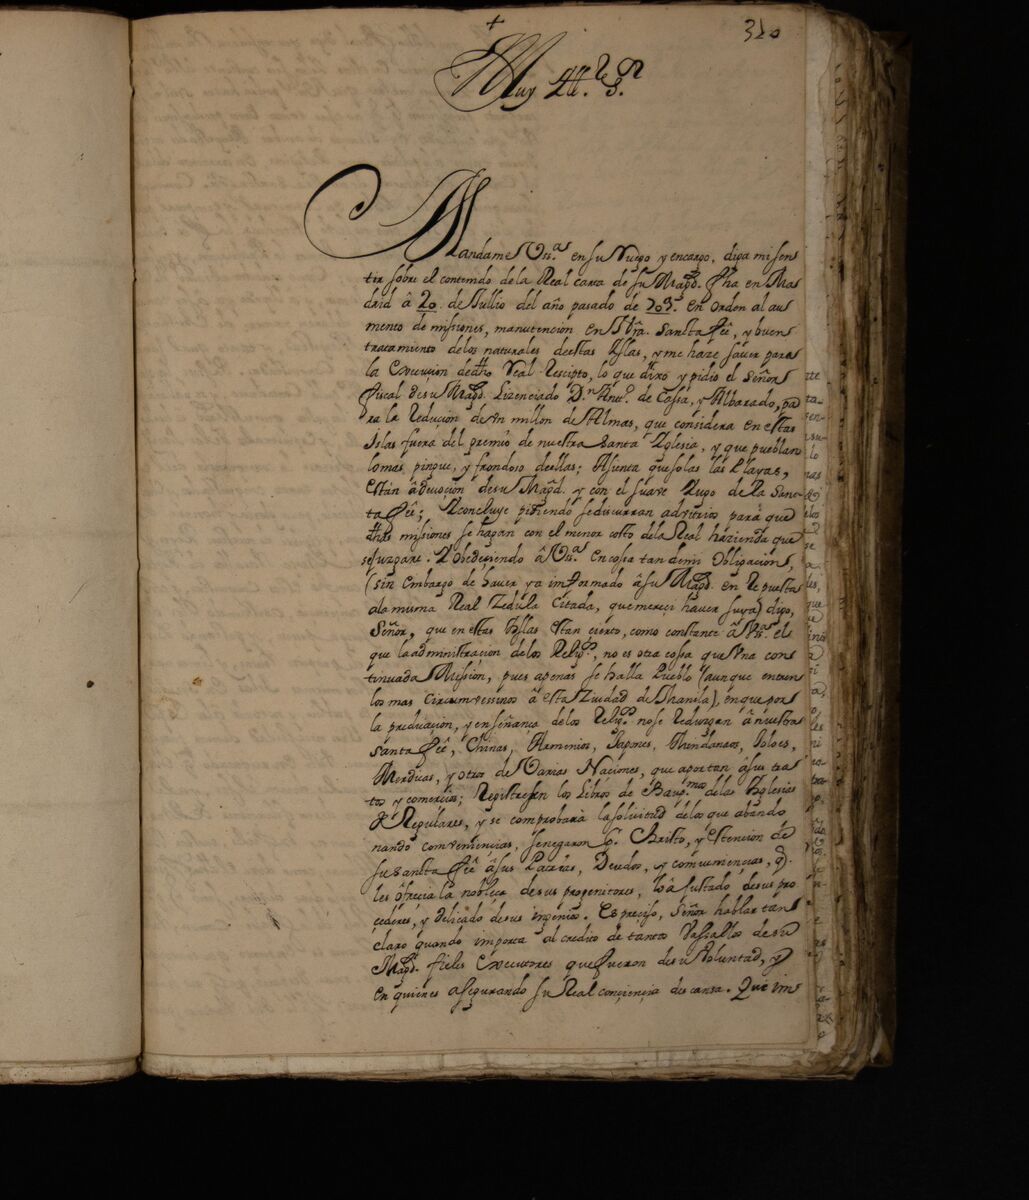 310
+
Muy Ille. Sr.
Mandame Vssa. en su Ruego y encargo, diga mi sen
tir sobre el contenido de la Real carta de su Magd. fha en Ma
drid â 20. de Jullio del año pasado de 703. en orden al au
mento de missiones, manutencion en Nra. Santa Feê, y buen
tratamiento de los naturales de estas Yslas, y me haze saver para
la execucion de dho Real Rescripto, lo que dixo y pidio el Señor
fiscal de su Magd. Lizenciado Dn. Anto. de Cassa, y Albarado, pa
ra la Reducion de vn millon de Almas, que considera en estas
Islas fuera del gremio de nuestra Santa Yglesia, y que pueblan
lo mas pingue, y frondoso de ellas; Asienta que solas las Playas,
estàn â devocion de su Magd. y con el suave Yugo de la Sanc
ta Feê; Y concluye pidiendo se discurran advitrios para que
dhas missiones se hagan con el menor costo de la Real hazienda que
se juzgare. Y Obedeciendo â Vssa. en cossa tan de mi Obligacion,
(sin embargo de haver ya informado â su Magd. en Repuesta
a la misma Real Zedula citada, que mereçi haver suya) digo,
Señor, que en estas Yslas es tan cierto, como constante â Vssa. el
que la administracion de los Religs. no es otra cossa que vna con
tinuada Mission, pues apenas se halla Pueblo (aunque entren
los mas circumvessinos â esta Ziudad de Manila), en que por
la predicacion, y enseñança de los Religs. no se Reduzgan â nuestra
Santa Feê, Chinas, Armenios, Japones, Mindanaos, Joloes,
Merduas, y otros de Varias Naciones, que aportan â sus tra
tos y comercios; Registresen los Libros de Baupmos. de las Yglesias
Regulares, y se comprobarà la solicitud de los que abando
nando combeniencias, se negaron pr. Christo, y estencion de
su santa Feê â sus Patrias, Deudos, y comveniencias, q.
les ôfrecia la nobleza de sus progenitores, lo ajustado de sus pro
cederes, y delicado de sus ingenios. Es preciso, Señor hablar tan
claro quando importa al credito de tantos Vassallos de su
Magd. fieles executores que fueron de su Voluntad, y
en quienes asegurando su Real conciencia descansa. Que im